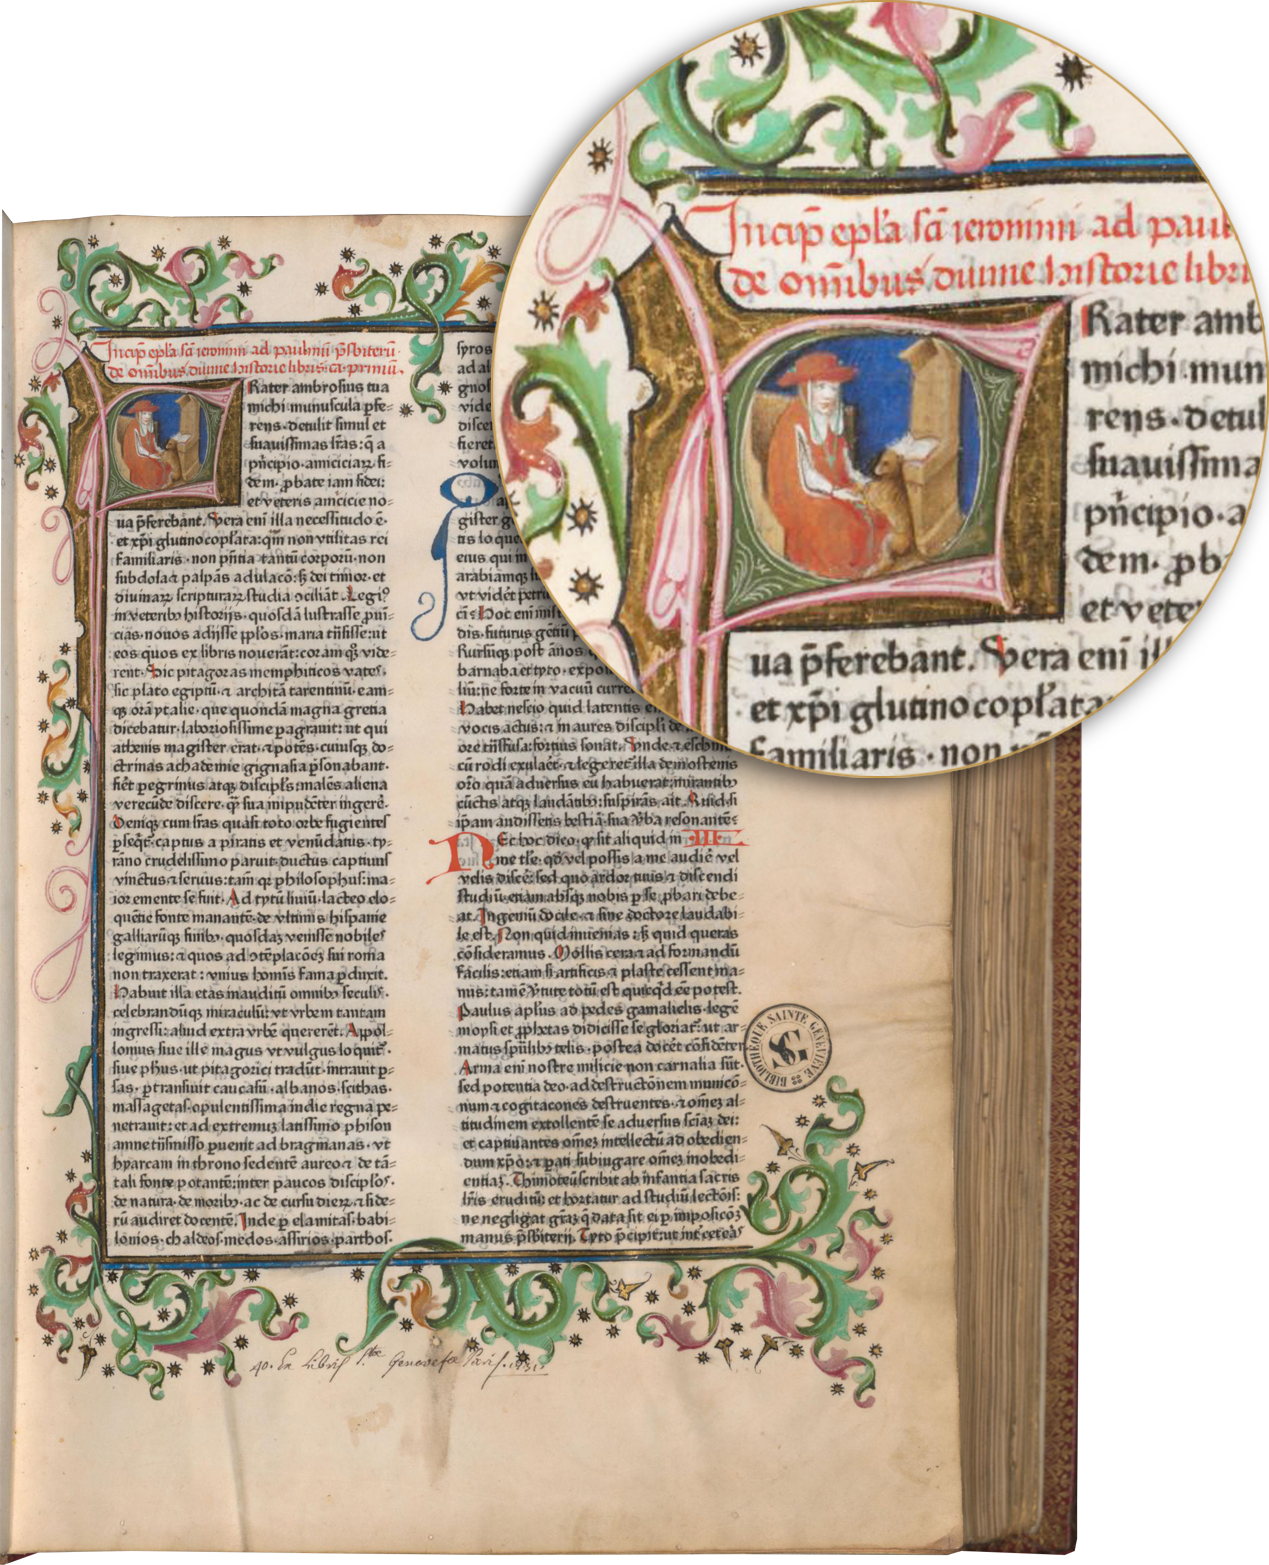 Incip̄ epl'a sc̄i ieronimi ad paulinū p̄sbiterū
de om̄ibus diuine historie libris. ca. primū.
Frater ambrosius tua
michi munuscula p̲fe=
rens. detulit simul et
suauissimas lr̄as: q̄ a
pn̄cipio. amiciciaꝝ. fi=
dem. ꝓbate iam fidei:
et veteris amicicie no=
ua p̄ferebant. Vera eni illa necessitudo ē.
et xp̄i glutino copl'ata: qm̄ non vtilitas rei
familiaris. non pn̄tia tantū corporū. non
subdola ⁊ palpās adulacō: sꝫ dei timor. et
diuinaꝝ scripturaꝝ studia ↄciliāt. Legi⁹
in veterib⁹ historijs. quosdā lustrasse ꝓui=
cias. nouos adijsse pp̄los. maria trāsisse: ut
eos quos ex libris nouerāt: coram qꝫ vide=
rent. Sic pitagoras memphiticos vates.
sic plato egiptū. ⁊ architā tarentinū. eam=
qꝫ orā ytalie. que quondā magna gretia
dicebatur. laboriosissime p̲agrauit: ut qui
athenis magister erat. ⁊ potēs. cuiusqꝫ do=
ctrinas achademie gignasia p̲sonabant.
fieret peregrinus atqꝫ discipl's: malēs aliena
verecūde discere. qꝫ sua inpudēter ingere.
Deniqꝫ cum lr̄as quasi toto orbe fugientes
p̲seqr̄et. captus a piratis et venūdatus. ty=
rāno crudelissimo paruit. ductus captiuus
vinctus ⁊ seruus: tam̄ qꝫ philosophus: ma=
ior emente se fuit. Ad tytū liuiū. lacteo elo=
quētie fonte manantē. de vltimis hispanie
galliarūqꝫ finib⁹. quosdaꝫ venisse nobiles
legimus: ⁊ quos ad ↄtēplacōeꝫ sui roma
non traxerat: vnius homīs fama p̲duxit.
Habuit illa etas inauditū omnib⁹ seculis.
celebrandūqꝫ miraculū: vt vrbem tantam
ingressi: aliud extra vrbē quererēt. Appol=
lonius siue ille magus vt vulgus loquit̄.
siue phus. ut pitagorici tradūt. intrauit p̲=
sas. p̲transiuit caucasū. albanos. scithas.
massagetas. opulentissima indie regna pe=
netrauit: et ad extremuꝫ latissimo phison
amne trāsmisso p̲uenit ad bragmanas. vt
hyarcam in throno sedentē aureo ⁊ de tā=
tali fonte potantē: inter paucos discipl'os.
de natura. de morib⁹. ac de cursu dieꝝ. ⁊ side=
rū audiret docentē. Inde p̲ elamitas. babi=
lonios. chaldeos. medos. assirios. parthos.
syros
ad al
gnos
vide
disce
fieret
volun
gister
tis loque
eius qui
arabiamqꝫ
vt vidēt petrū
Hoc eni
dis. futurus gētiū
Rursūqꝫ post ānos
barnaba et tyto. expo
liū: ne forte in vacuū curre
Habet nescio quid latentis
vocis actus: ⁊ in aures discipl'i de
ore trāsfusa: fortius sonat. Vnde ⁊ eschines
cū rodi exularet. ⁊ legeret illa demostenis
orō quā aduersus eū habuerat: mirantib⁹
cūctis atqꝫ laudātib⁹: suspirās. ait. Quid si
ip̄am audissens bestiā. sua v̄ba resonantē:
NEc hoc dico. qꝫ sit aliquid in III
me tl'e. qd̄ vel possis a me audire vel
velis discē: sed quo ardor tuus. ⁊ discendi
studiū. etiam absqꝫ nobis p̲ se. ꝓbari debe=
at. Ingeniū docile. ⁊ sine doctore laudabi=
le est. Non quid inuenias: sꝫ quid queras
cōsideramus. Mollis cera ⁊ ad formandū
facilis: etiam si artificis ⁊ plaste cessent ma=
nus: tamē v̄tute totū est quicqd ēē potest.
Paulus apl'us ad pedes gamalielis. legē
moysi et ꝓphetas didicisse se gloriat̄: ut ar=
matus spūalib⁹ telis. postea docēt cōfidēter
Arma eni nostre milicie non carnalia sūt.
sed potentia deo. ad destructōnem municō=
num ⁊ cogitacones destruentes. ⁊ om̄eꝫ al=
titudinem extollentē se aduersus sciaꝫ dei:
et captiuantes om̄eꝫ intellectū ad obedien=
dum xp̄o: ⁊ p̲ati subiugare om̄eꝫ inobedi=
entiaꝫ. Thimoteū scribit ab infantia sacris
lr̄is eruditū: et hortatur ad studiū lectōis:
ne negligat grāꝫ q̄ data sit ei p̲ imposicōꝫ
manus p̄sbiterij. Tyto p̄cipit: ut int̄ cetēas
BIBLIOTHÈQUE SAINTE GENEVIEVE
SG
40. Ex Libris Stæ Genovefæ Paris. 1731.
Incip̄ epl'a sc̄i ieronimi ad paul
de om̄ibus diuine historie libri
Rater amb
michi mun
rens. detul
suauissima
pn̄cipio. a
dem. ꝓb
et vete
ua p̄ferebant. Vera eni ill
et xp̄i glutino copl'ata
familiaris. non